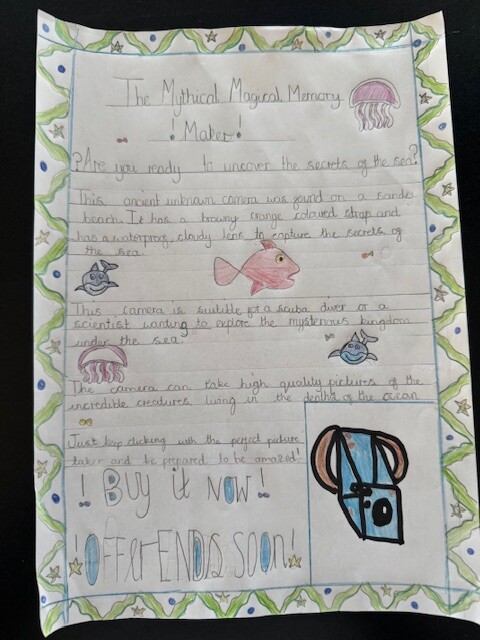 The Mythical Magical Memory
! Maker!
?Are you ready to uncover the secrets of the sea?
This ancient unknown camera was found on a sandy
beach. It has a browny orange coloured strap and
has a waterproof, cloudy lens to capture the secrets of
the sea.
This camera is suitible for a scuba diver or a
scientist wanting to explore the mysterious kingdom
under the sea.
The camera can take high quality pictures of the
incredible creatures living in the depths of the ocean
Just keep clicking with the perfect picture
taker and be prepared to be amazed!
! Buy it Now!
!OFFer ENDs soon!